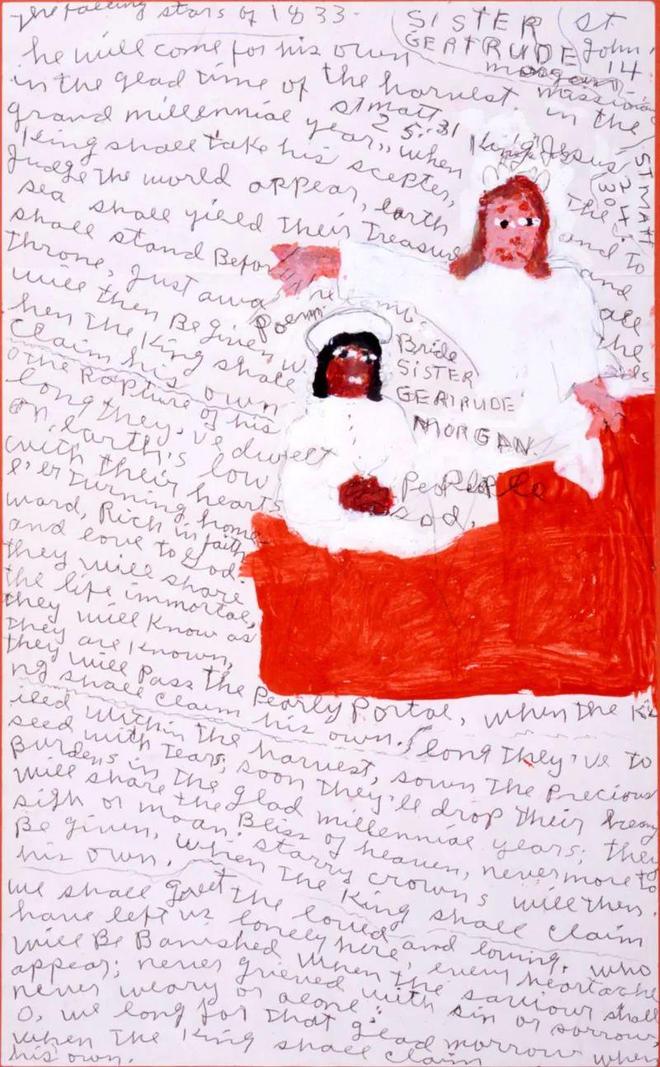 falling stars of 1833.
SISTER
GERTRUDE
morgan
missio
St
John
14
he will come for his own
in the glad time of the harvest. in the
grand millennial year,, when King Jesus
St matt
25:31
ST MATT
24
30
King shall take his scepter, The
Judge the world appear, Earth and to
sea shall yield Their Treasure and
shall stand Before The
Throne, Just awa
will then Be given, w
hen The King shall
Claim his own
Poem
Bride
SISTER
GERTRUDE
MORGAN.
People
God.
O The Rapture of his
long they've dwelt
on earth's low
with their hearts
e'er Turning home
ward, Rich in faith
and love to God.
they will share
the life immortal,
they will Know as
they are Known,
they will Pass The Pearly Portal, when the Ki
ng shall Claim his own. long They've to
iled within the harvest, sown The Precious
seed with Tears; soon They'll drop Their heavy
Burdens in the glad millennial years; they
will share the Bliss of heaven, nevermore to
sigh or moan. starry crowns will then
Be given, when The King shall Claim
his own.
we shall greet the loved and loving, who
have left us lonely here, every heartache
will Be Banished when the saviour shall
appear; never grieved with sin or sorrow,
never weary or alone;
O, we long for that glad morrow when
when The King shall Claim
his own.